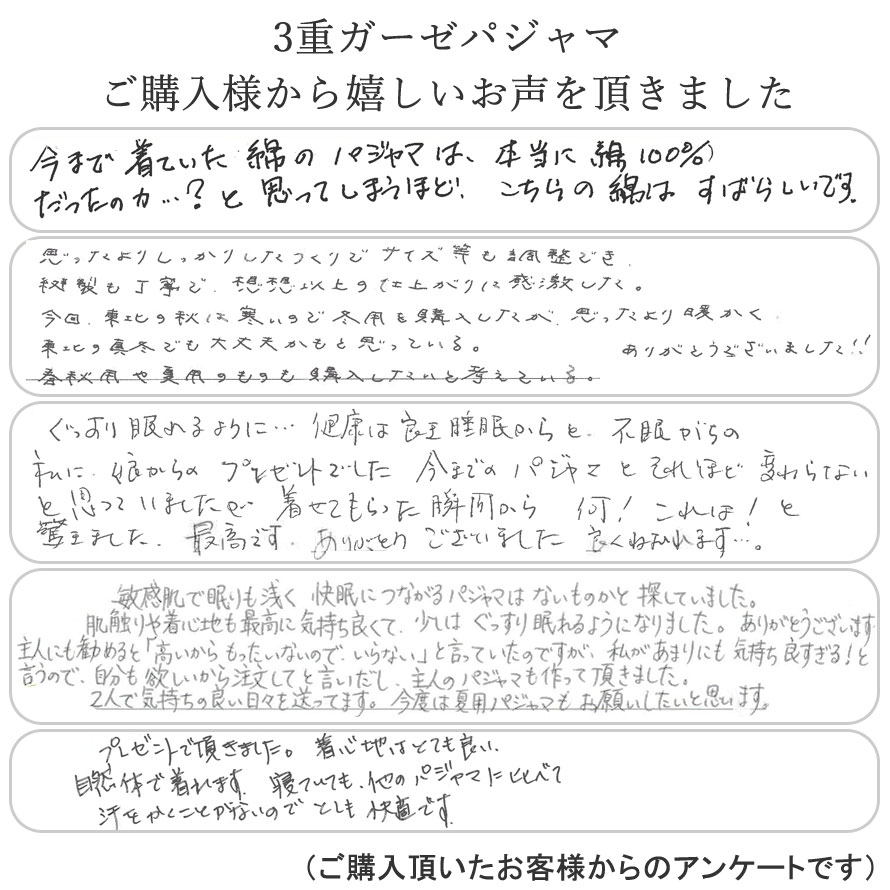 3重ガーゼパジャマ
ご購入様から嬉しいお声を頂きました
今まで着ていた綿のパジャマは、本当に綿100%
だったのカ…?と思ってしまうほど、こちらの綿は すばらしいです。
思ったよりしっかりしたつくりでサイズ等も調整でき、
縫製も丁寧で、想想以上の仕上がりに感激した。
今回、東北の秋は寒いので冬用を購入したが、思ったより暖かく
東北の真冬でも大丈夫かもと思っている。 ありがとうございました!!
春秋用や夏用のものも購入したいと考えている。
ぐっすり眠れるように… 健康は良き睡眠からと、不眠がちの
私に、娘からの プレゼントでした 今までのパジャマとそれほど変わらない
と思っていましたが 着せてもらった瞬間から 何! これは! と
驚きました、最高です、ありがとう ございました 良くねむれます…。
敏感肌で眠りも浅く 快眠につながるパジャマは ないものかと 探していました。
肌触りや着心地も最高に気持ち良くて、少しは ぐっすり眠れるようになりました。ありがとうございます
主人にも勧めると「高いから もったいないので、いらない」と言っていたのですが、私があまりにも 気持ち良すぎる!と
言うので、自分も欲しいから注文してと言いだし、主人のパジャマも作って頂きました。
2人で気持ちの良い日々を送ってます。今度は夏用パジャマも お願いしたいと思います。
プレゼントで頂きました。着心地はとても良い、
自然体で着れます。寝ていても、他のパジャマにくらべて
汗をかくことがないので とても 快適です。
(ご購入頂いたお客様からのアンケートです)